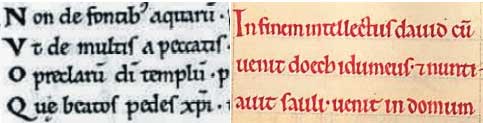 Non de fontib' aquarū·
Vt de multis a peccatis·
O preclarū di templū· p
Quē beatos pedes xpi·
In finem intellectus dauid cū
uenit doech idumeus· ⁊ nunti
auit sauli· uenit in domum